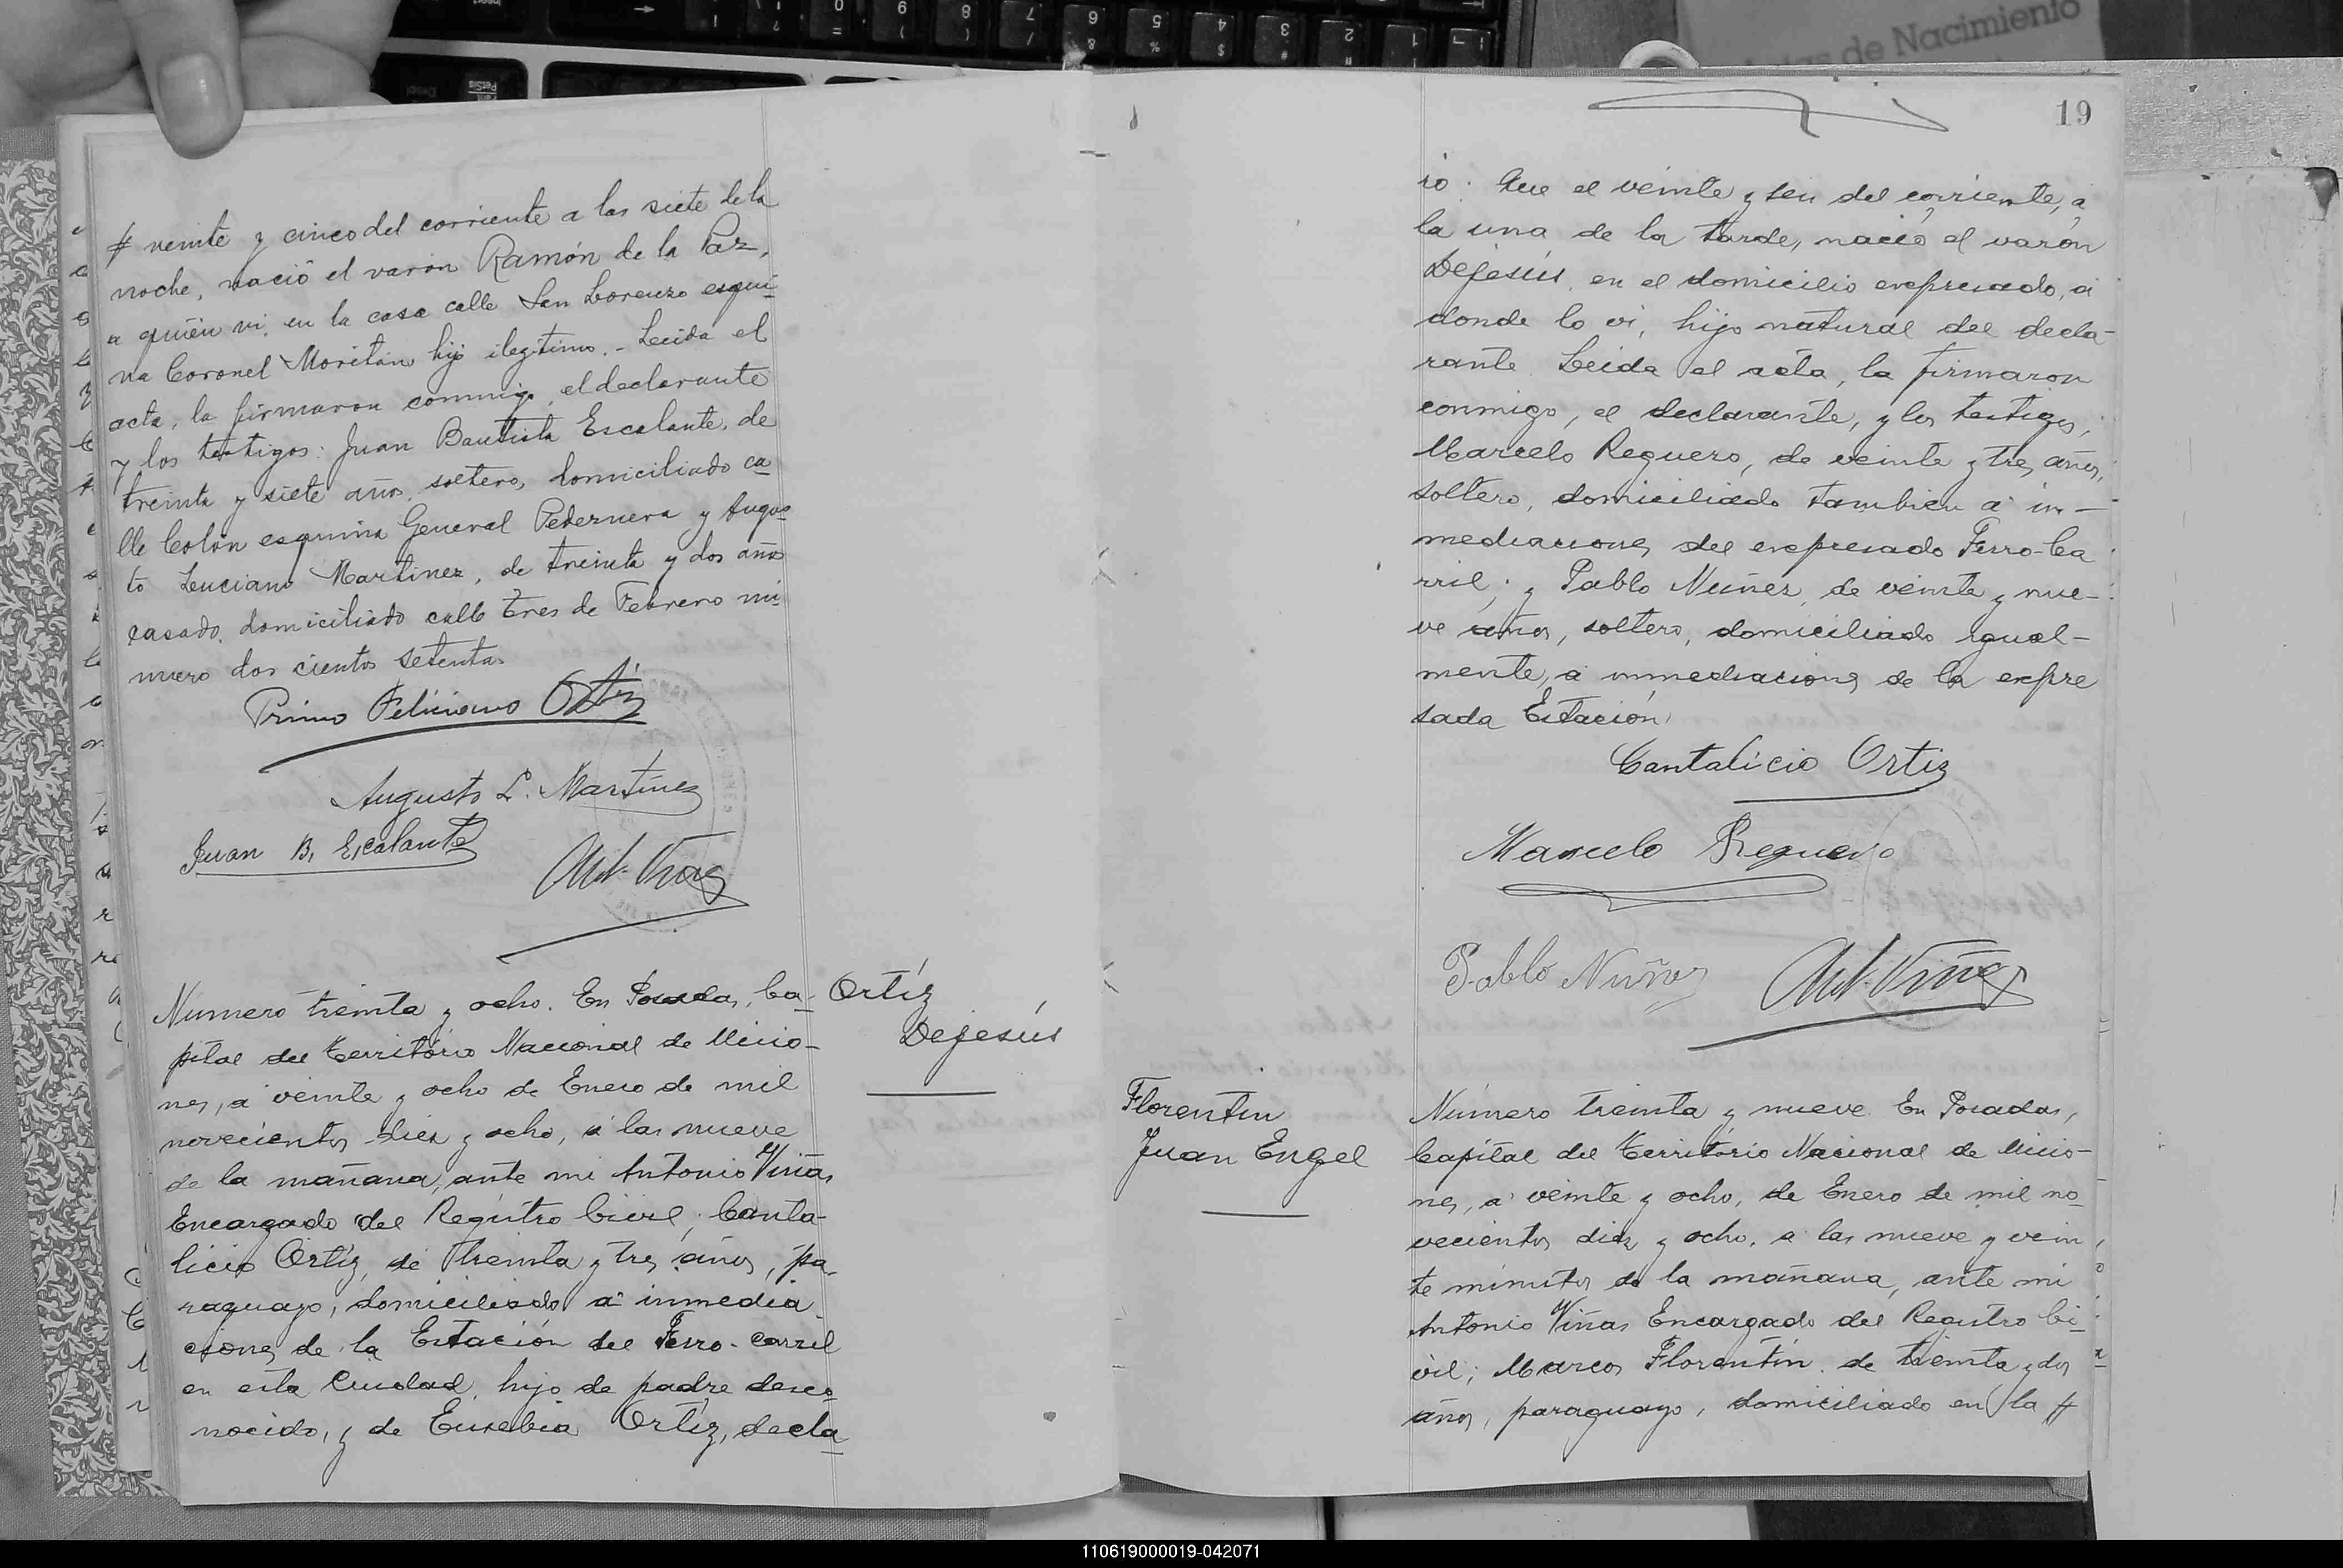 # veinte y cinco del corriente a las siete de la
noche, nació el varón Ramón de la Paz,
a quién vi, en la casa calle San Lorenzo esqui-
na Coronel Moritán hijo ilegítimo. - Leída el
acta, la firmaron conmigo, el declarante
y los testigos: Juan Bautista Escalante, de
treinta y siete años, soltero, domiciliado ca
lle Colón esquina General Pedernera y Augus
to Luciano Martinez, de treinta y dos años
casado, domiciliado calle Tres de Febrero nú
mero dos cientos setenta.
Primo Feliciano Ortíz
Augusto L. Martínez
Juan B. Escalante
Ant. Viñas
Número treinta y ocho. En Posadas, Ca-
pital del Território Nacional de Misio-
nes, á veinte y ocho de Enero de mil
novecientos diez y ocho, á las nueve
de la mañana, ante mi Antonio Viñas
Encargado del Registro Civil; Canta-
licio Ortíz, de treinta y tres años, pa-
raguayo, domiciliado á inmedia
ciones de la Estación del Ferro-carril
en esta Ciudad, hijo de padre desco-
nocido, y de Eusebia Ortíz, decla
Ortíz
Dejesús
19
ró: Que el veinte y seis del corriente, á
la una de la tarde, nació el varón
Dejesús, en el domicilio expresado, á
donde lo vi, hijo natural del decla-
rante. Leida el acta, la firmaron
conmigo, el declarante, y los testigos,
Marcelo Reguero, de veinte y tres años,
soltero, domiciliado tambien á in-
mediaciones del expresado Ferro-Ca
rril; y Pablo Nuñez, de veinte y nue-
ve años, soltero, domiciliado igual-
mente, á inmediaciones de la expre
sada Estación.
Cantalicio Ortiz
Marcelo Reguero
Pablo Nuñez
Ant. Viñas
Florentin
Juan Engel
Número treinta y nueve. En Posadas,
Capital del Território Nacional de Misio-
nes, á veinte y ocho, de Enero de mil no
vecientos diez y ocho, á las nueve y vein
te minutos de la mañana, ante mi
Antonio Viñas Encargado del Registro Ci-
vil; Marcos Florentín, de treinta y dos
años, paraguayo, domiciliado en la #
de Nacimiento
110619000019-042071